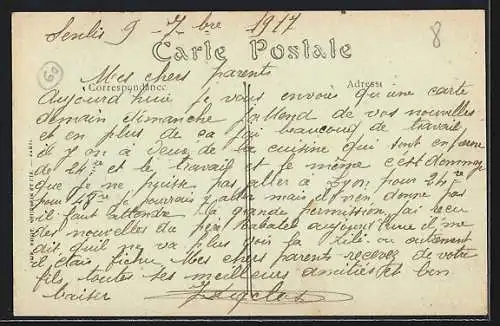 Senlis 9 - 7bre 1917
Carte Postale
Mes chers parents
Correspondance Adresse
Aujourd'huie je vous envois qu'une carte
demain dimanche j'attend de vos nouvelles
et en plus de ça j'ai beaucoup de travail
il y on à deux de la cuisine qui sont en perme
de 24 et le travail et le même c'est dommage
que je ne puisse pas aller à Lyon pour 24
pour 48 je pourrais y aller mais il n'en donne pas
il faut attendre la grande permission j'ai reçu
des nouvelles du père aujourd'huie il me
dit qu'il ne va plus fois la autrement
il étais fichu Mes chers parents recevez de votre
fils toutes ses meilleurs amitiés et bon
baiser